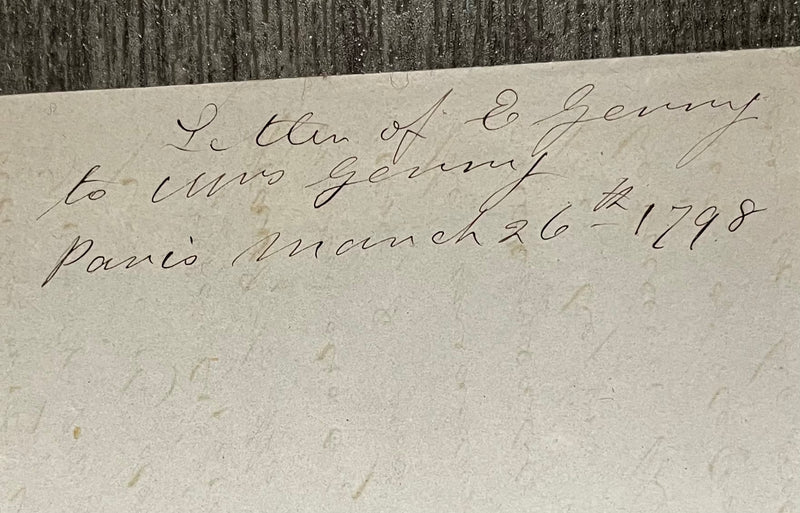 Letter of E Gerry
to Mrs Gerry
Paris March 26th 1798